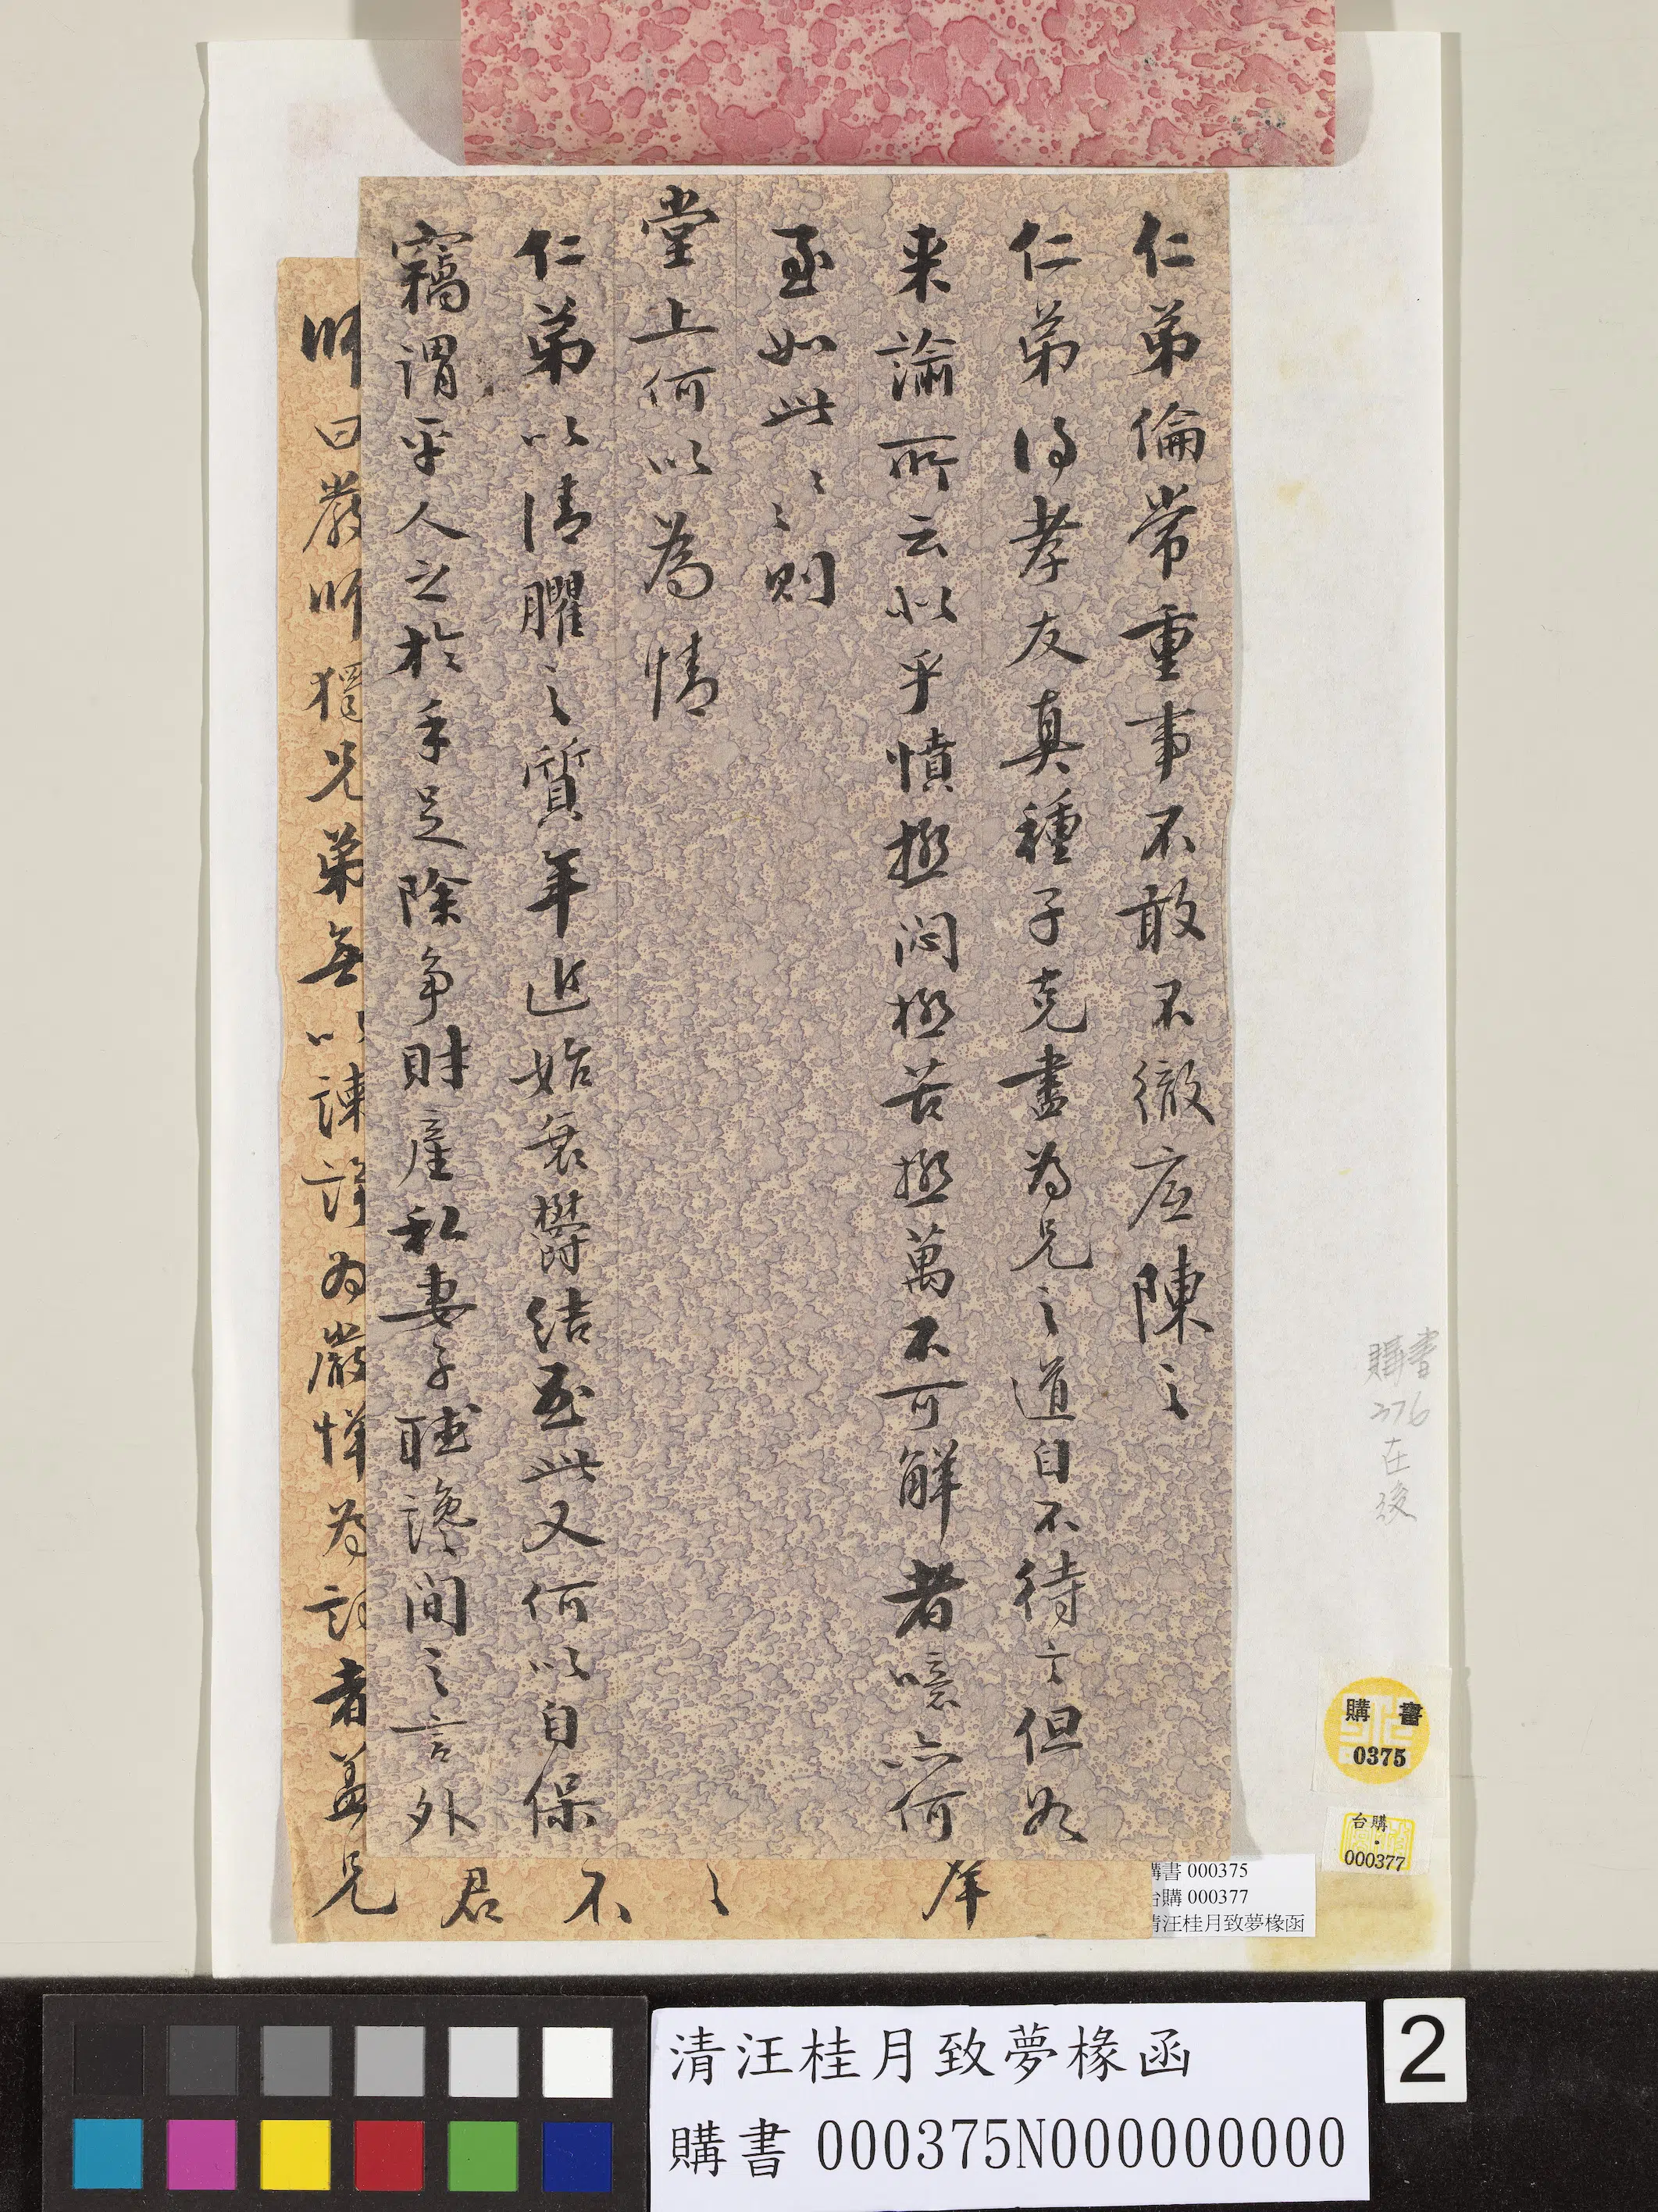 仁弟倫常重事不敢不徹底陳之
仁弟得孝友真種子克盡為兄之道自不待言但如
来諭所云似乎憤極悶極苦極萬不可解者噫亦何
至如此〻〻則
堂上何以為情
仁弟以清臞之質年近始衰鬱結至此又何以自保
竊謂平人之於手足除爭財產私妻子聽讒間之言外
師曰嚴師獨兄弟無以諫諍為嚴憚為
者蓋兄
君
不
之
購書
376
在
後
購書
0375
台購
000377
購書 000375
台購 000377
清汪桂月致夢椽函
清汪桂月致夢椽函
購書 000375N000000000
2